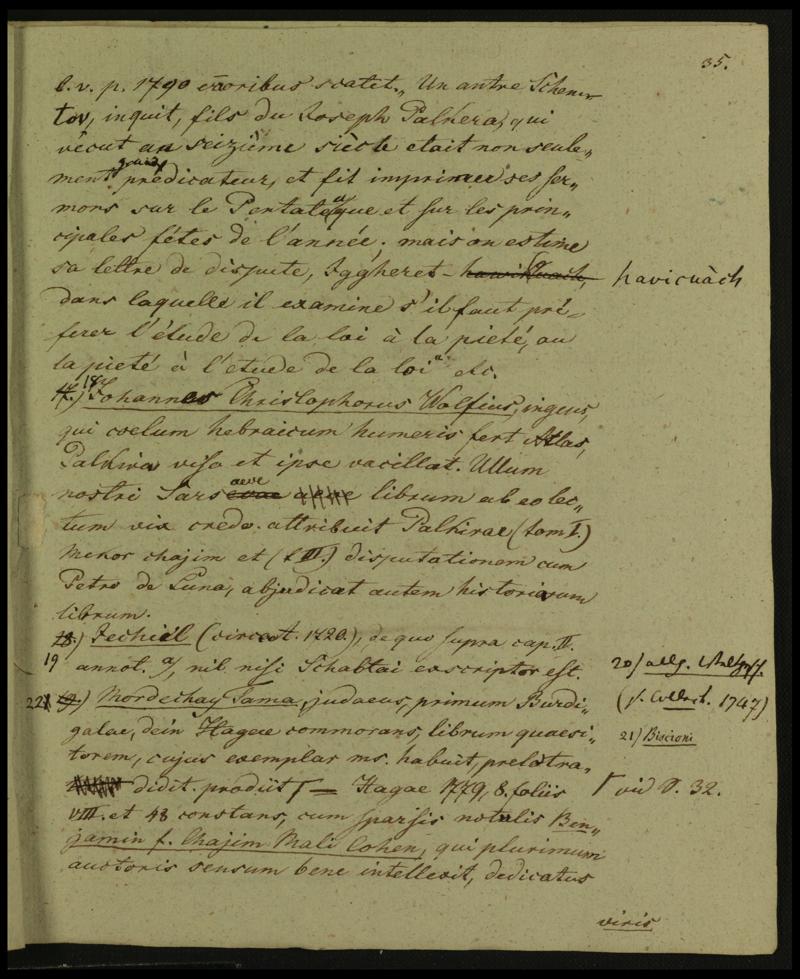 35.
l. v. p. 1790 erroribus scatet. „ Un autre Schem-
tov, inquit, fils du Joseph Palkera, qui
vécut au seizième siècle etait non seule„
ment grand prédicateur, et fit imprimer ses ser„
mons sur le Pentateuque et sur les prin„
cipales fétes de l'année; mais on estime
sa lettre de dispute, Iggheret- havicuàch
dans laquelle il examine s'il faut pré„
ferer l'étude de la loi à la pieté, ou
la pieté à l'etude de la loi" etc.
18) Johannes Christophorus Wolfius, ingens,
qui coelum hebraicum humeris fert Atlas,
Palkira viso et ipse vacillat. Ullum
nostri Sarsaeve librum ab eo lec„
tum vix credo. attribuit Palkirae (tom I.)
Mekor chajim et (t III.) disputationem cum
Petro de Luna, abjudicat autem historiarum
librum.
19) Jechiél (circa t. 1720.), de quo supra cap. II.
annot. a), nil nisi Schabtai exscriptor est.
20) allg. Weltgesch.
(v. Collect. 1747)
21) Biscioni
22) Mordechay Tama, judaeus, primum Burdi„
galae, dein Hagae commorans, librum quaesi„
torem, cujus exemplar ms. habuit, prelo tra„
didit. prodiit Γ — Hagae 1779, 8. foliis
Γ vid P. 32.
VIII. et 48 constans, cum sparsis notulis Ben„
jamin f. Chajim Mali Cohen, qui plurimum
auctoris sensum bene intellexit, dedicatus
viris